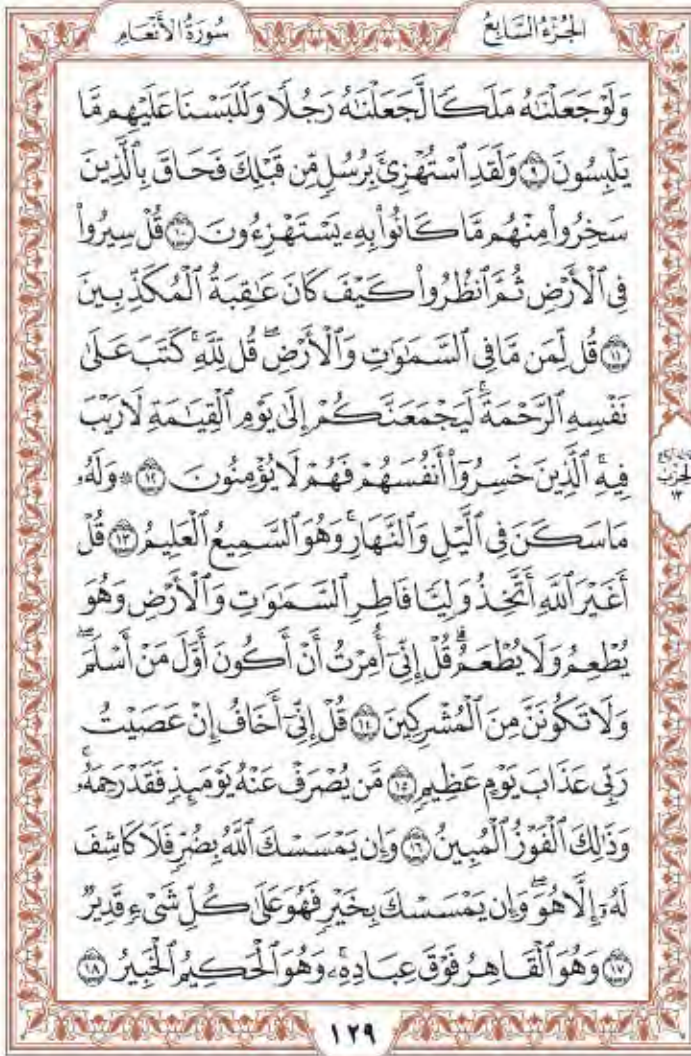 سُورَةُ الْأَنْعَامِ
الجُزْءُ السَّابِعُ
وَلَوْ جَعَلْنَٰهُ مَلَكًا لَّجَعَلْنَٰهُ رَجُلًا وَلَلَبَسْنَا عَلَيْهِم مَّا
يَلْبِسُونَ ٩ وَلَقَدِ ٱسْتُهْزِئَ بِرُسُلٍ مِّن قَبْلِكَ فَحَاقَ بِٱلَّذِينَ
سَخِرُوا۟ مِنْهُم مَّا كَانُوا۟ بِهِۦ يَسْتَهْزِءُونَ ١٠ قُلْ سِيرُوا۟
فِى ٱلْأَرْضِ ثُمَّ ٱنظُرُوا۟ كَيْفَ كَانَ عَٰقِبَةُ ٱلْمُكَذِّبِينَ
١١ قُل لِّمَن مَّا فِى ٱلسَّمَٰوَٰتِ وَٱلْأَرْضِۖ قُل لِّلَّهِۚ كَتَبَ عَلَىٰ
نَفْسِهِ ٱلرَّحْمَةَۚ لَيَجْمَعَنَّكُمْ إِلَىٰ يَوْمِ ٱلْقِيَٰمَةِ لَا رَيْبَ
فِيهِۚ ٱلَّذِينَ خَسِرُوٓا۟ أَنفُسَهُمْ فَهُمْ لَا يُؤْمِنُونَ ١٢ ۞ وَلَهُۥ
مَا سَكَنَ فِى ٱلَّيْلِ وَٱلنَّهَارِۚ وَهُوَ ٱلسَّمِيعُ ٱلْعَلِيمُ ١٣ قُلْ
أَغَيْرَ ٱللَّهِ أَتَّخِذُ وَلِيًّا فَاطِرِ ٱلسَّمَٰوَٰتِ وَٱلْأَرْضِ وَهُوَ
يُطْعِمُ وَلَا يُطْعَمُۗ قُلْ إِنِّىٓ أُمِرْتُ أَنْ أَكُونَ أَوَّلَ مَنْ أَسْلَمَۖ
وَلَا تَكُونَنَّ مِنَ ٱلْمُشْرِكِينَ ١٤ قُلْ إِنِّىٓ أَخَافُ إِنْ عَصَيْتُ
رَبِّى عَذَابَ يَوْمٍ عَظِيمٍ ١٥ مَّن يُصْرَفْ عَنْهُ يَوْمَئِذٍ فَقَدْ رَحِمَهُۥۚ
وَذَٰلِكَ ٱلْفَوْزُ ٱلْمُبِينُ ١٦ وَإِن يَمْسَسْكَ ٱللَّهُ بِضُرٍّ فَلَا كَاشِفَ
لَهُۥٓ إِلَّا هُوَۖ وَإِن يَمْسَسْكَ بِخَيْرٍ فَهُوَ عَلَىٰ كُلِّ شَىْءٍ قَدِيرٌ
١٧ وَهُوَ ٱلْقَاهِرُ فَوْقَ عِبَادِهِۦۚ وَهُوَ ٱلْحَكِيمُ ٱلْخَبِيرُ ١٨
الحزب
١٣
١٢٩